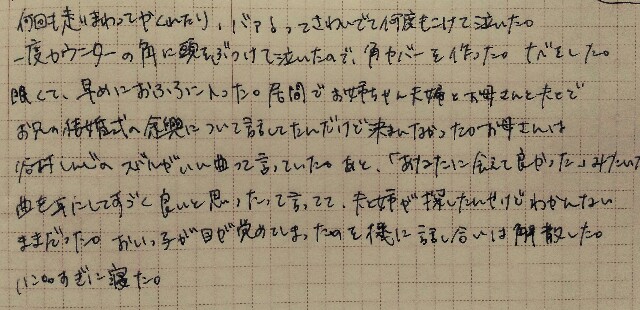 何回も走りまわってやくれたり、バァ〜ってさわいでて何度もこけて泣いた。
一度カウンターの角に頭をぶつけて泣いたので、角カバーを作った。ナベをした。
眠くて、早めにおふろに入った。居間でお姉ちゃん夫婦とお母さんと夫とで
お兄の結婚式の余興について話してたんだけど決まんなかった。お母さんは
谷村しんじの スバルがいい曲って言っていた。あと、「あなたに会えて良かった」みたいな
曲を耳にしてすごく良いと思ったって言ってて、夫と姉が探したんやけどわかんない
ままだった。おいっ子が目が覚めてしまったのを機に話し合いは解散した。
すぎに寝た。